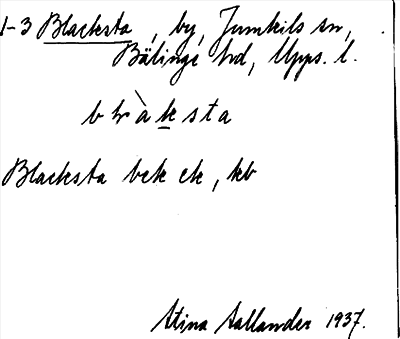 1-3 Blacksta, by, Jumkils sn,
Bälinge hd, Upps. l.
Blacksta bek ek, kb
Stina Sallander 1937.